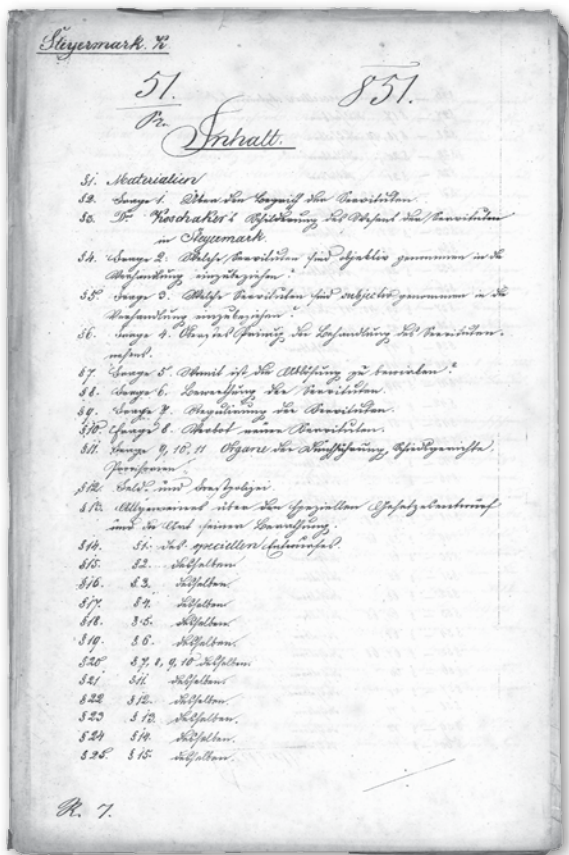 Steyermark. K.
51. 851.
Pr.
Inhalt.
§1. Materialien
§2. Frage 1. Über den Begriff der Servituten.
§3. Dr Koschaker's Schilderung des Stehens der Servituten
in Steyermark
§4. Frage 2. Welche Servituten sind objektiv genommen in die
Verhandlung einzubeziehen?
§5. Frage 3. Welche Servituten sind subjectiv genommen in die
Verhandlung einzubeziehen?
§6. Frage 4. Oberstes Prinzip der Behandlung des Servituten-
§7. Frage 5. Womit ist die Ablösung zu bewirken?
§8. Frage 6. Bewerthung der Servituten.
§9. Frage 7. Regulirung der Servituten.
§10. Frage 8. Verbot neuer Servituten.
§11. Frage 9, 10, 11 Organe der Durchführung, Schiedsgerichte,
Provisorien.
§12. Feld- und Forstpolizei.
§13. Allgemeines über den speziellen Gesetzesentwurf
und die Art seiner Berathung.
§14. §1. des speciellen Entwurfes.
§15. §2. desselben.
§16. §3. desselben.
§17. §4. desselben.
§18. §5. desselben.
§19. §6. desselben.
§20 §7, 8, 9, 10 desselben.
§21 §11. desselben.
§22 §12. desselben.
§23 §13. desselben.
§24 §14. desselben.
§25. §15. desselben.
K. 7.